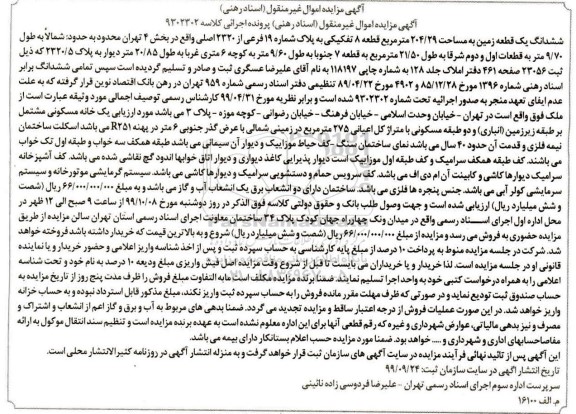 آگهی مزایده اموال غیر منقول (اسناد رهنی)
آگهی مزایده اموال غیر منقول (اسناد رهنی) پرونده اجرائی کلاسه ۹۳۰۲۳۰۲
ششدانگ یک قطعه زمین به مساحت ۲۰۴/۲۹ مترمربع قطعه ۸ تفکیکی به پلاک شماره ۱۹ فرعی از ۲۳۲۰ اصلی واقع در بخش ۴ تهران محدود به حدود: شمالاً به طول
۹/۷۰ متر به قطعات اول و دوم شرقا به طول ۲۱/۵۰ مترمربع به قطعه ۷ جنوبا به طول ۹/۶۰ متر به کوچه ۶ متری غربا به طول ۲۰/۸۵ متر دیوار به پلاک ۲۳۲۰/۵ که ذیل
ثبت ۲۳۰۵۶ صفحه ۴۶۱ دفتر املاک جلد ۱۲۸ به شماره چاپی ۱۱۸۱۹۷ به نام آقای علیرضا عسگری ثبت و صادر و تسلیم گردیده است سپس تمامی ششدانگ برابر
اسناد رهنی شماره ۱۳۹۶ مورخ ۸۵/۱۲/۲۸ و ۴۹۰۲ مورخ ۸۹/۰۴/۲۲ تنظیمی دفتر اسناد رسمی شماره ۹۵۹ تهران در رهن بانک اقتصاد نوین قرار گرفته که به علت
عدم ایفای تعهد منجر به صدور اجرائیه تحت شماره ۹۳۰۲۳۰۲ شده است و برابر نظریه مورخ ۹۹/۰۴/۳۱ کارشناس رسمی توصیف اجمالی مورد وثیقه عبارت است از
ملک فوق واقع است در تهران - خیابان وحدت اسلامی - خیابان فرهنگ - خیابان رضوانی - کوچه موزه - پلاک ۳ می باشد مورد ارزیابی یک خانه مسکونی مشتمل
بر طبقه زیرزمین (انباری) و دو طبقه مسکونی با متراژ کل اعیانی ۲۷۵ مترمربع در زمینی شمالی با عرض گذر جنوبی ۶ متر در پهنه R۲۵۱ می باشد اسکلت ساختمان
نیمه فلزی و قدمت آن حدود ۴۰ سال می باشد نمای ساختمان سنگ، کف حیاط موزاییک و دیوار آن سیمانی می باشد طبقه همکف سه خواب و طبقه اول تک خواب
می باشند. کف طبقه همکف سرامیک و کف طبقه اول موزاییک است دیوار پذیرایی کاغذ دیواری و دیوار اتاق خوابها اندود گچ نقاشی شده می باشد. کف آشپزخانه
سرامیک دیوارها کاشی و کابینت آن ام دی اف می باشد. کف سرویس حمام و دستشویی سرامیک و دیوارها کاشی می باشد. سیستم گرمایشی موتورخانه و سیستم
سرمایشی کولر آبی می باشد. جنس پنجره ها فلزی می باشد. ساختمان دارای دو انشعاب برق یک انشعاب آب و گاز می باشد و به مبلغ ۶۶/۰۰۰/۰۰۰/۰۰۰ ریال (شصت
و شش میلیارد ریال) ارزیابی شده است و جهت وصول طلب بانک و حقوق دولتی کلاسه فوق الذکر در روز دوشنبه مورخ ۹۹/۱۰/۰۸ از ساعت ۹ صبح الی ۱۲ ظهر در
محل اداره اول اجرای اسناد رسمی واقع در میدان ونک چهارراه جهان کودک پلاک ۳۴ ساختمان معاونت اجرای اسناد رسمی استان تهران سالن مزایده از طریق
مزایده حضوری به فروش می رسد و مزایده از مبلغ ۶۶/۰۰۰/۰۰۰/۰۰۰ ریال (شصت و شش میلیارد ریال) شروع و به بالاترین قیمت که خریدار داشته باشد فروخته خواهد
شد. شرکت در جلسه مزایده منوط به پرداخت ۱۰ درصد از مبلغ پایه کارشناسی به حساب سپرده ثبت و پس از اخذ شناسه واریز اعلامی و حضور خریدار و یا نماینده
قانونی او در جلسه مزایده است. لذا خریدار و یا خریداران می بایست تا قبل از شروع وقت مزایده اصل فیش واریزی مبلغ ودیعه ۱۰ درصد به نام خود و تحت شناسه
اعلامی را به همراه درخواست کتبی خود به واحد اجرا تسلیم نمایند. ضمنا برنده مزایده مکلف است مابه التفاوت مبلغ فروش را ظرف مدت پنج روز از تاریخ مزایده به
حساب صندوق ثبت تودیع نماید و در صورتی که ظرف مهلت مقرر مانده فروش را به حساب سپرده ثبت واریز نکند، مبلغ مذکور قابل استرداد نبوده و به حساب خزانه
واریز خواهد شد. در این صورت عملیات فروش از درجه اعتبار ساقط و مزایده تجدید می گردد. ضمنا بدهی های مربوط به آب و برق و گاز اعم از انشعاب و اشتراک و
مصرف و نیز بدهی مالیاتی، عوارض شهرداری و غیره که رقم قطعی آنها برای این اداره معلوم نشده است به عهده برنده مزایده است و تنظیم سند انتقال موکول به ارائه
مفاصاحسابهای اداری و شهرداری و ..... خواهد بود. ضمنا مورد مزایده حسب اعلام بستانکار دارای بیمه می باشد.
این آگهی پس از تائید نهائی فرآیند مزایده در سایت آگهی های سازمان ثبت قرار خواهد گرفت و به منزله انتشار آگهی در روزنامه کثیرالانتشار محلی است.
تاریخ انتشار آگهی در سایت سازمان ثبت: ۹۹/۰۹/۲۴
سرپرست اداره سوم اجرای اسناد رسمی تهران - علیرضا فردوسی زاده نائینی
م. الف ۱۶۱۰۰